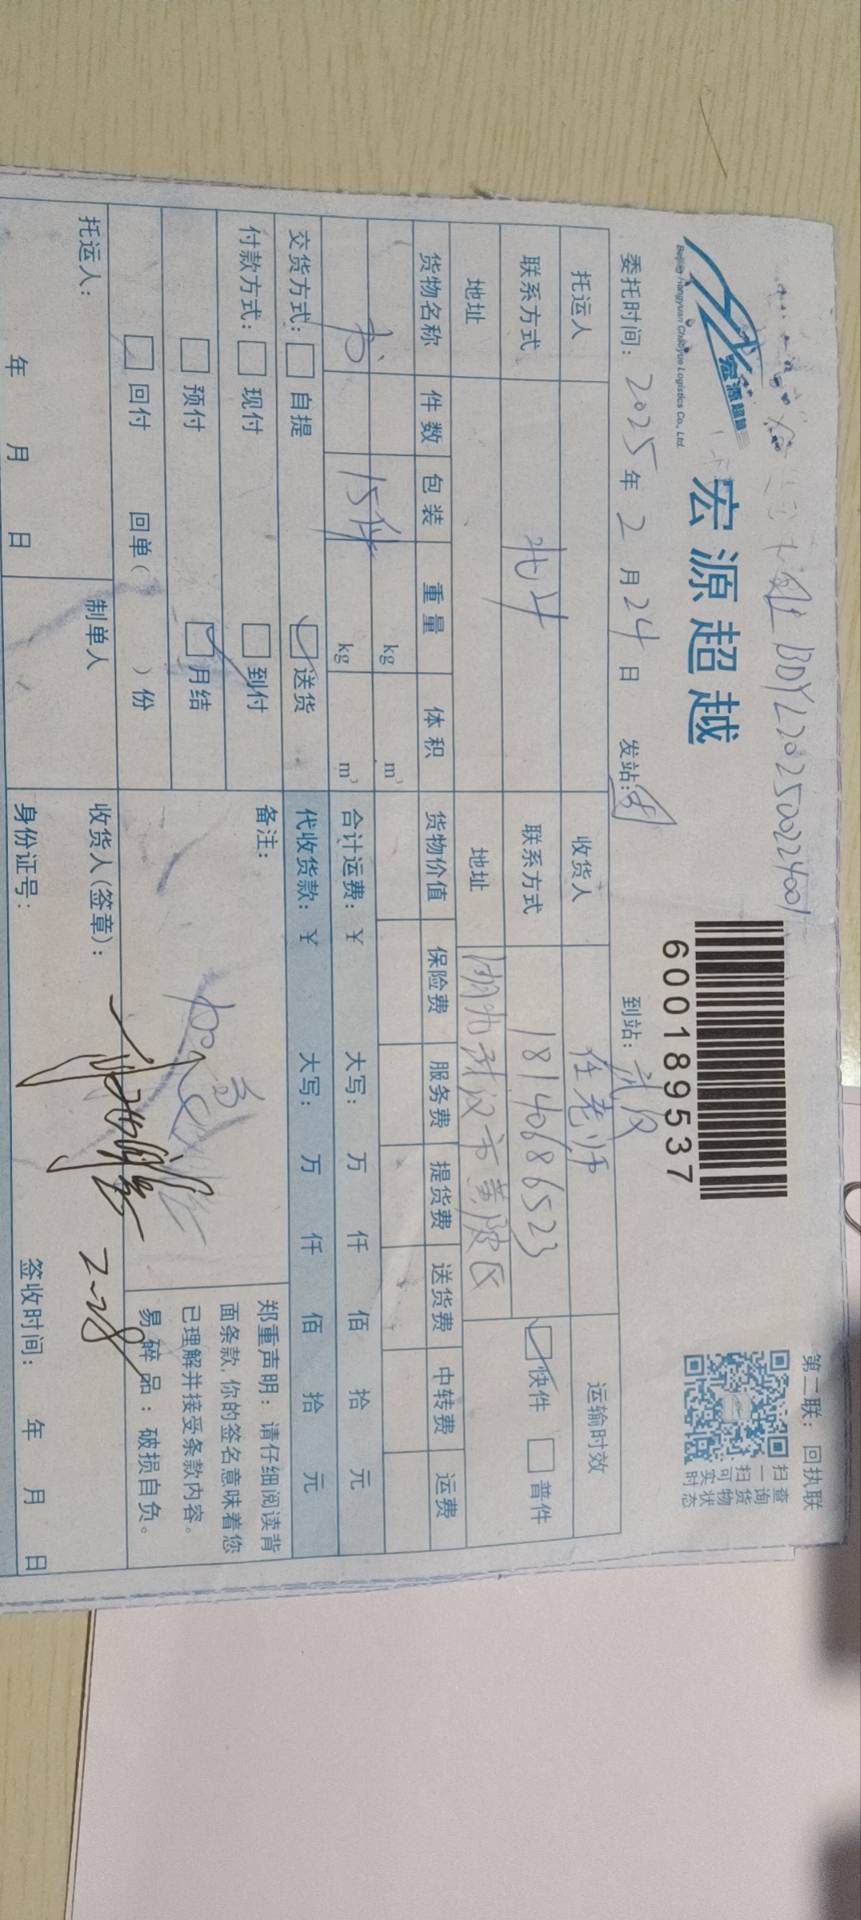 BDYL20250224001
宏源超越
Beijing Hongyuan Chaoyue Logistics Co., Ltd.
宏源超越
600189537
第二联：回执联
扫一扫可实时
查询货物状态
委托时间：2025年2月24日 发站： 到站：武汉
托运人 收货人 任老师 运输时效
联系方式 北斗 联系方式 18140686523 快件 普件
地址 地址 湖北武汉市黄陂区
货物名称 件数 包装 重量 体积 货物价值 保险费 服务费 提货费 送货费 中转费 运费
kg m³
书 15件 kg m³ 合计运费：¥ 大写： 万 仟 佰 拾 元
交货方式： 自提 送货 代收货款：¥ 大写： 万 仟 佰 拾 元
付款方式： 现付 到付 备注：
预付 月结
回付 回单（ ）份
郑重声明：请仔细阅读背
面条款,你的签名意味着您
已理解并接受条款内容。
易碎品：破损自负。
托运人： 制单人 收货人(签章)： 2-28
年 月 日 身份证号： 签收时间： 年 月 日